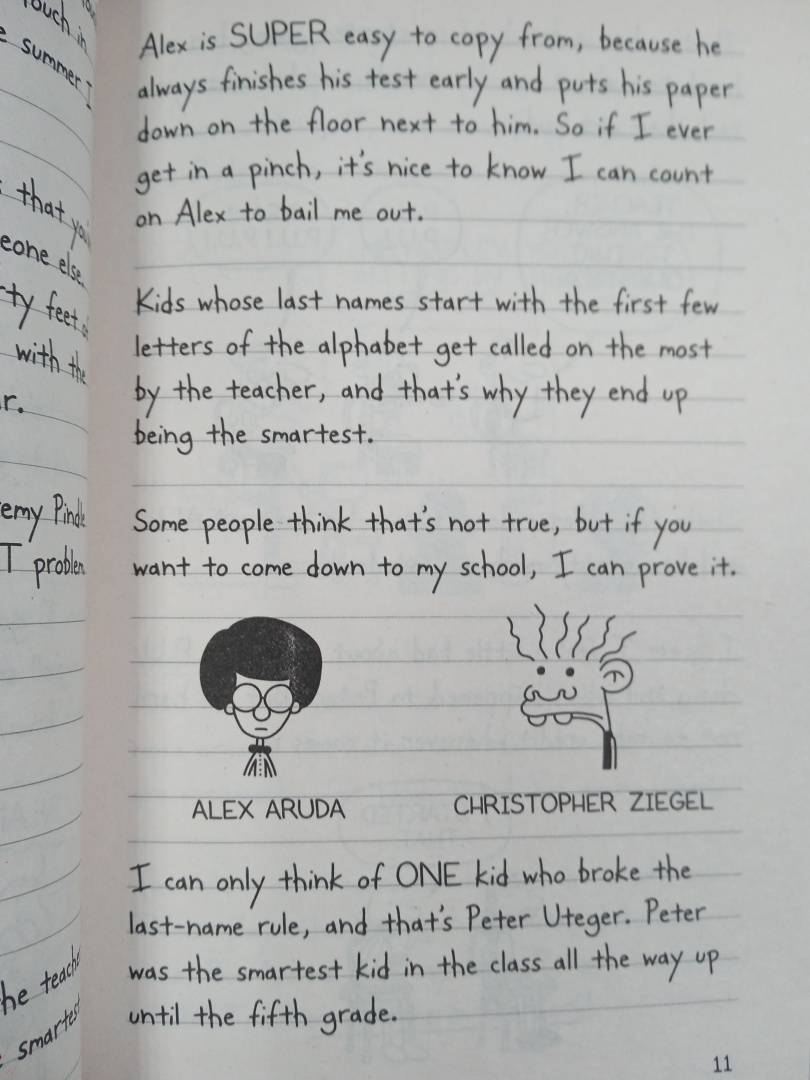 ouch in
summer I
that you
eone else.
ty feet
with the
r.
emy Pindle
T problem
he teache
smartest
Alex is SUPER easy to copy from, because he
always finishes his test early and puts his paper
down on the floor next to him. So if I ever
get in a pinch, it's nice to know I can count
on Alex to bail me out.
Kids whose last names start with the first few
letters of the alphabet get called on the most
by the teacher, and that's why they end up
being the smartest.
Some people think that's not true, but if you
want to come down to my school, I can prove it.
ALEX ARUDA
CHRISTOPHER ZIEGEL
I can only think of ONE kid who broke the
last-name rule, and that's Peter Uteger. Peter
was the smartest kid in the class all the way up
until the fifth grade.
11